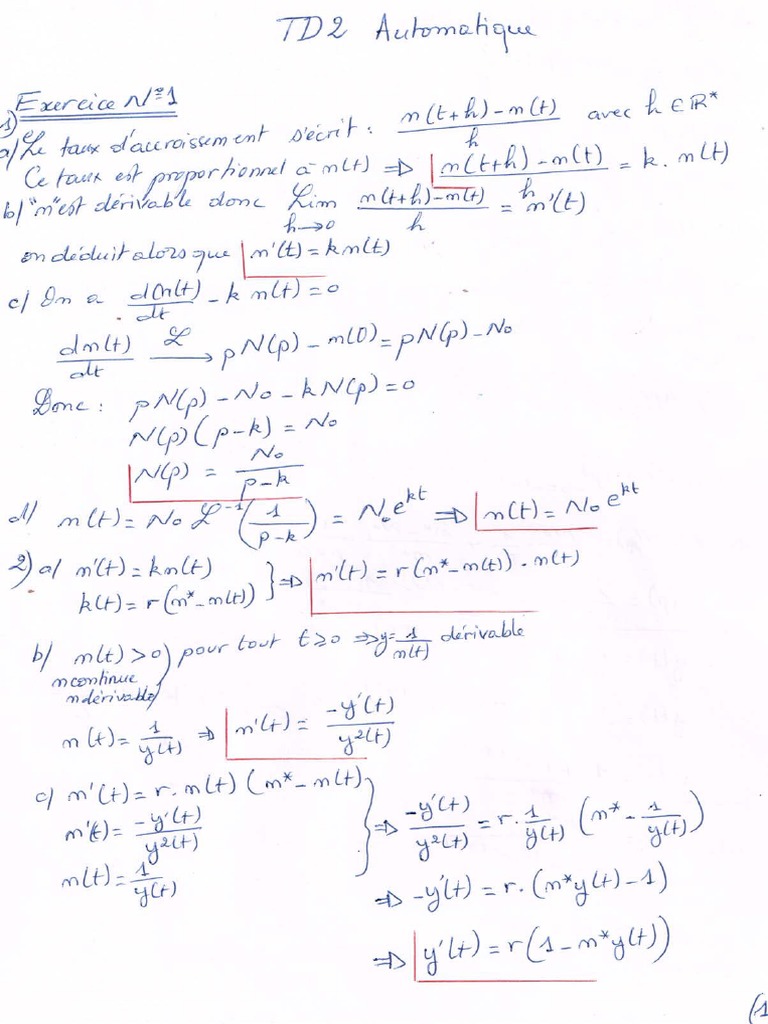 TD2 Automatique
Exercice N°1
1)
a) Le taux d'accroissement s'écrit : (n(t+h) - n(t))/h avec h ∈ ℝ*
Ce taux est proportionnel à n(t) ⇒ (n(t+h) - n(t))/h = k . n(t)
b) "n" est dérivable donc Lim h→0 (n(t+h) - n(t))/h = n'(t)
on déduit alors que n'(t) = k n(t)
c) On a d(n(t))/dt - k n(t) = 0
dn(t)/dt —ℒ→ pN(p) - n(0) = pN(p) - No
Donc : pN(p) - No - kN(p) = 0
N(p)(p-k) = No
N(p) = No/(p-k)
d) n(t) = No ℒ⁻¹(1/(p-k)) = No e^kt ⇒ n(t) = No e^kt
2) a) n'(t) = kn(t)
k(t) = r(n* - n(t)) } ⇒ n'(t) = r(n* - n(t)) . n(t)
b) n(t) > 0 ) pour tout t ≥ 0 ⇒ y = 1/n(t) dérivable
n continue
n dérivable
n(t) = 1/y(t) ⇒ n'(t) = -y'(t)/y²(t)
c) n'(t) = r . n(t) (n* - n(t))
n'(t) = -y'(t)/y²(t) } ⇒ -y'(t)/y²(t) = r . 1/y(t) (n* - 1/y(t))
n(t) = 1/y(t)
⇒ -y'(t) = r . (n*y(t) - 1)
⇒ y'(t) = r(1 - n*y(t))
(1